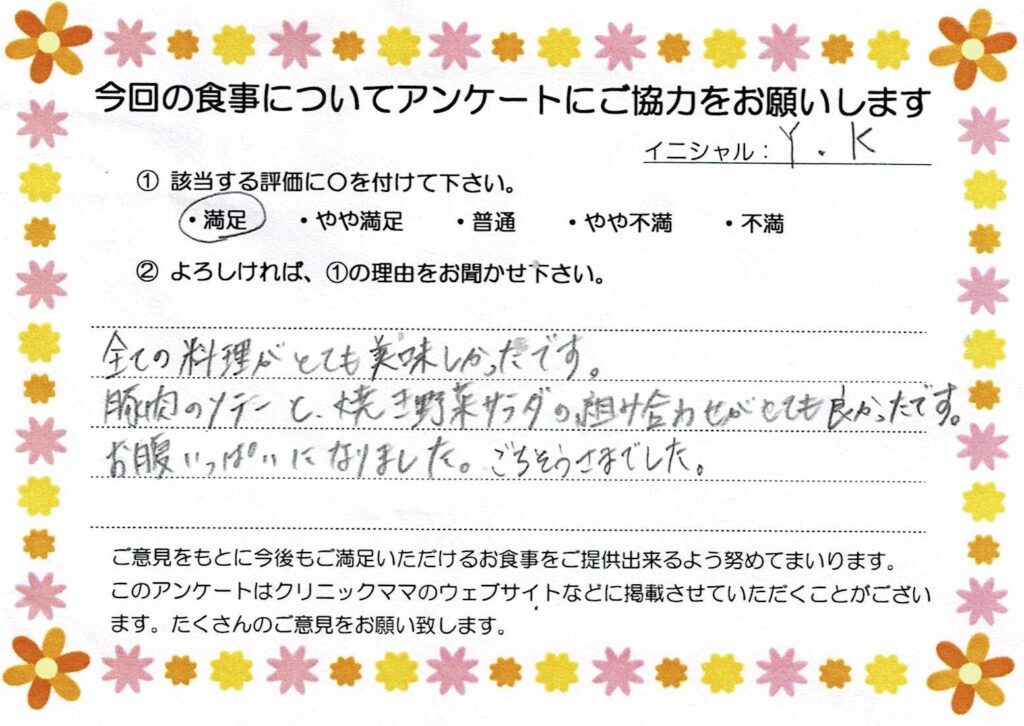 今回の食事についてアンケートにご協力をお願いします
イニシャル：Y．K
① 該当する評価に〇を付けて下さい。
・満足 ・やや満足 ・普通 ・やや不満 ・不満
② よろしければ、①の理由をお聞かせ下さい。
全ての料理がとても美味しかったです。
豚肉のソテーと、焼き野菜サラダの組み合わせがとても良かったです。
お腹いっぱいになりました。ごちそうさまでした。
ご意見をもとに今後もご満足いただけるお食事をご提供出来るよう努めてまいります。
このアンケートはクリニックママのウェブサイトなどに掲載させていただくことがござい
ます。たくさんのご意見をお願い致します。